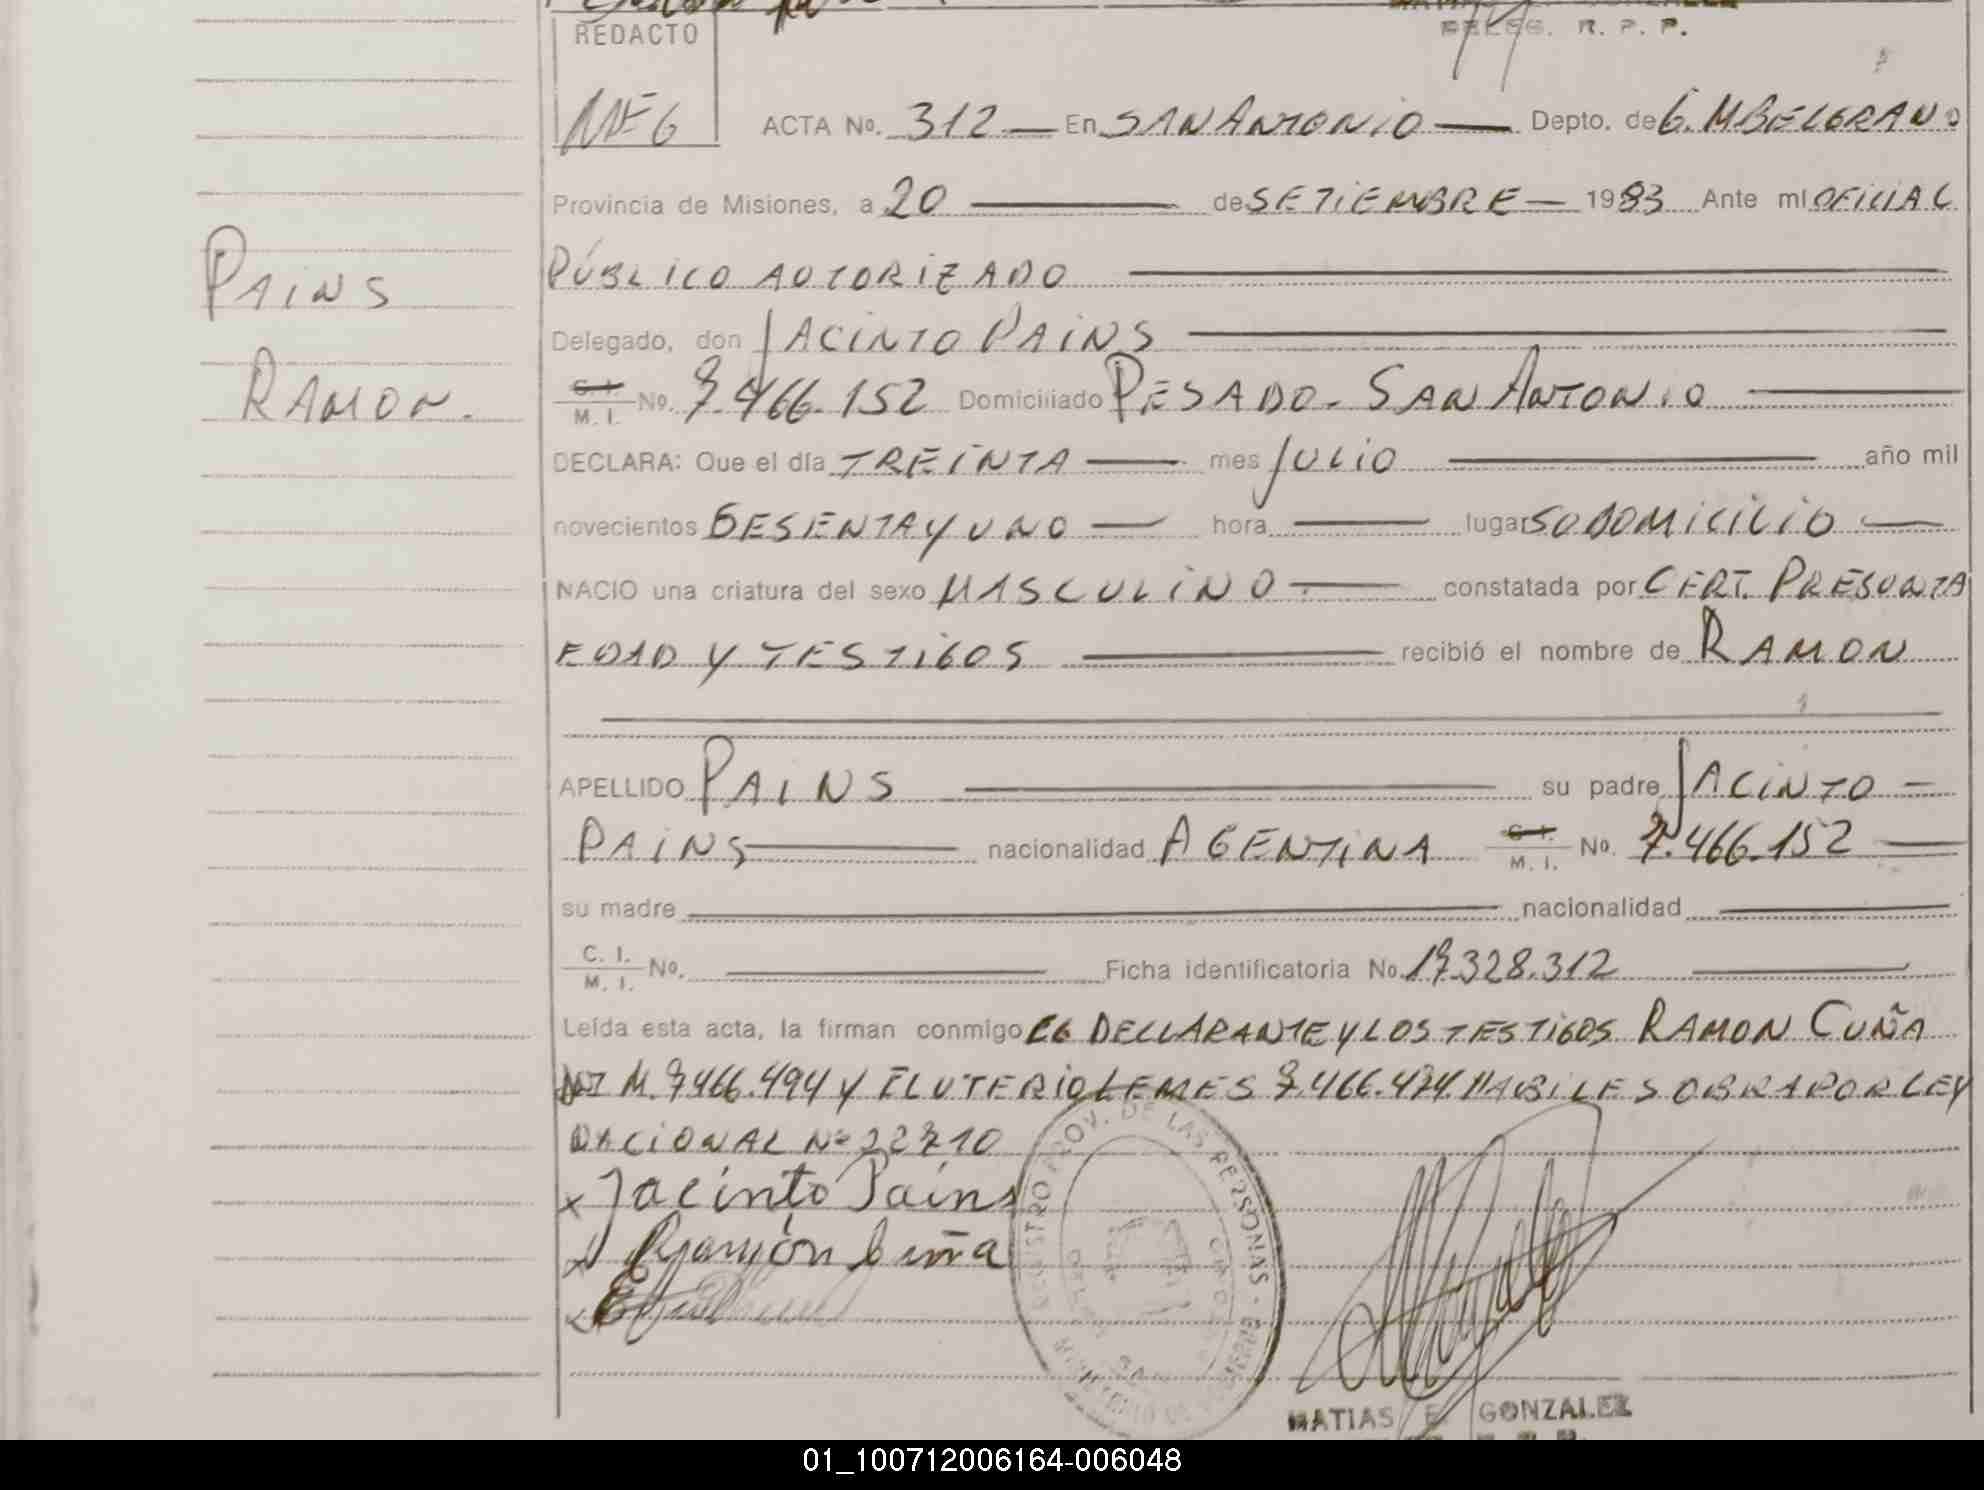 REDACTO
DELEG. R. P. P.
ACTA No. 312 En SAN ANTONIO Depto. de G. M BELGRANO
Provincia de Misiones, a 20 de SETIEMBRE 1983 Ante mi OFICIAL
PÚBLICO AUTORIZADO
PAINS
Delegado, don JACINTO PAINS
RAMON.
C. I.
M. I. No. 7.466.152 Domiciliado PESADO - SAN ANTONIO
DECLARA: Que el día TREINTA mes JULIO año mil
novecientos SESENTA Y UNO hora lugar SU DOMICILIO
NACIO una criatura del sexo MASCULINO constatada por CERT. PRESUNTA
EDAD Y TESTIGOS recibió el nombre de RAMON
APELLIDO PAINS su padre JACINTO
PAINS nacionalidad AGENTINA C. I. M. I. No. 7.466.152
su madre nacionalidad
C. I. M. I. No. Ficha identificatoria No. 17.328.312
Leída esta acta, la firman conmigo EL DECLARANTE Y LOS TESTIGOS RAMON CUÑA
M. 7.466.494 Y ELUTERIO LEMES 7.466.474 HABILES OBRA POR LEY
NACIONAL Nº 22710
x Jacinto Pains
x Ramón Cuña
x
REGISTRO PROV. DE LAS PERSONAS
MATIAS E. GONZALEZ
01_100712006164-006048